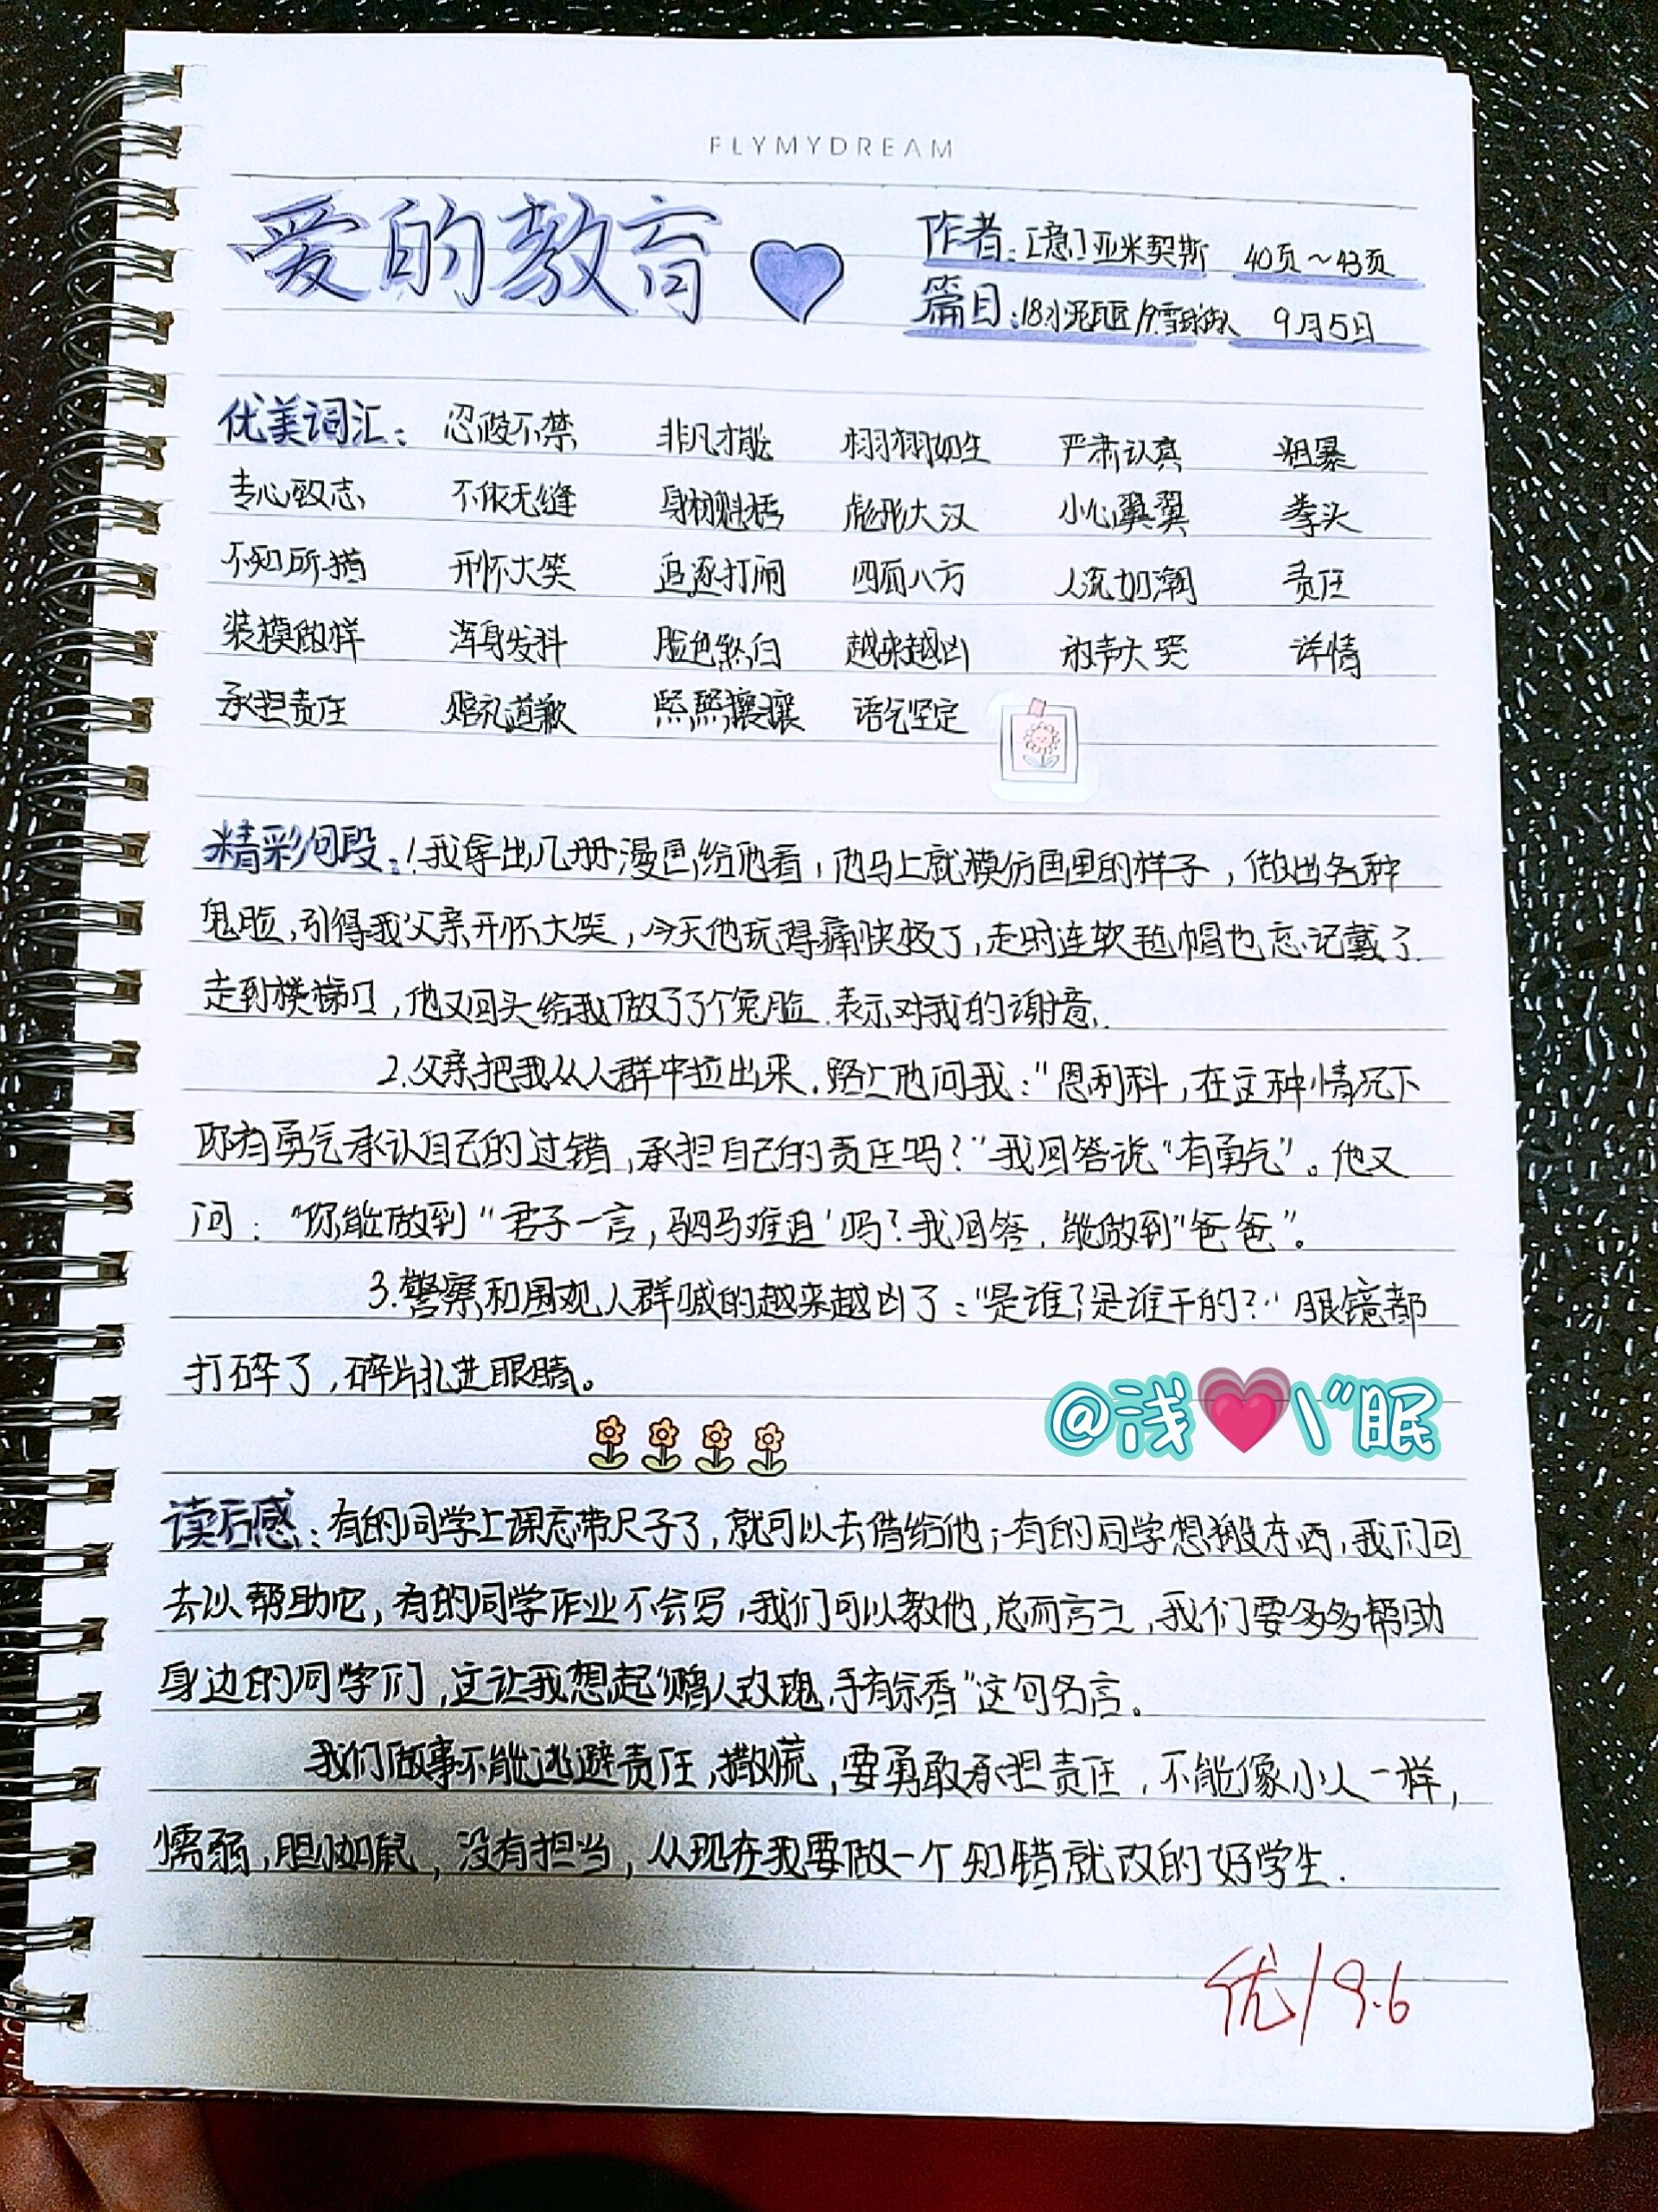 FLYMYDREAM
爱的教育
作者:[意]亚米契斯 40页~43页
篇目:18小泥瓦匠/19雪球 9月5日
优美词汇: 忍俊不禁 非凡才能 栩栩如生 严肃认真 粗暴
专心致志 不依无缝 身材魁梧 彪形大汉 小心翼翼 拳头
不知所措 开怀大笑 追逐打闹 四面八方 人流如潮 责任
装模做样 浑身发抖 脸色煞白 越来越凶 放声大哭 详情
承担责任 赔礼道歉 熙熙攘攘 语气坚定
精彩句段:1.我拿出几册漫画给他看,他马上就模仿画里的样子,做出各种
鬼脸,引得我父亲开怀大笑,今天他玩得痛快极了,走时连软毡帽也忘记戴了.
走到楼梯口,他又回头给我做了个兔脸.表示对我的谢意.
2.父亲把我从人群中拉出来.路上他问我:"恩利科,在这种情况下
你有勇气承认自己的过错,承担自己的责任吗?"我回答说"有勇气"。他又
问:"你能做到"君子一言,驷马难追'吗?我回答,能做到"爸爸"。
3.警察和围观人群喊的越来越凶了:"是谁?是谁干的?"眼镜都
打碎了,碎片扎进眼睛。
@浅💗\"眠
读后感:有的同学上课忘带尺子了,就可以去借给他;有的同学想搬东西,我们可
去以帮助它,有的同学作业不会写,我们可以教他,总而言之,我们要多多帮助
身边的同学们,这让我想起"赠人玫瑰,手有余香"这句名言。
我们做事不能逃避责任,撒慌,要勇敢承担责任,不能像小人一样,
懦弱,胆小如鼠,没有担当,从现在我要做一个知错就改的好学生.
优/9.6